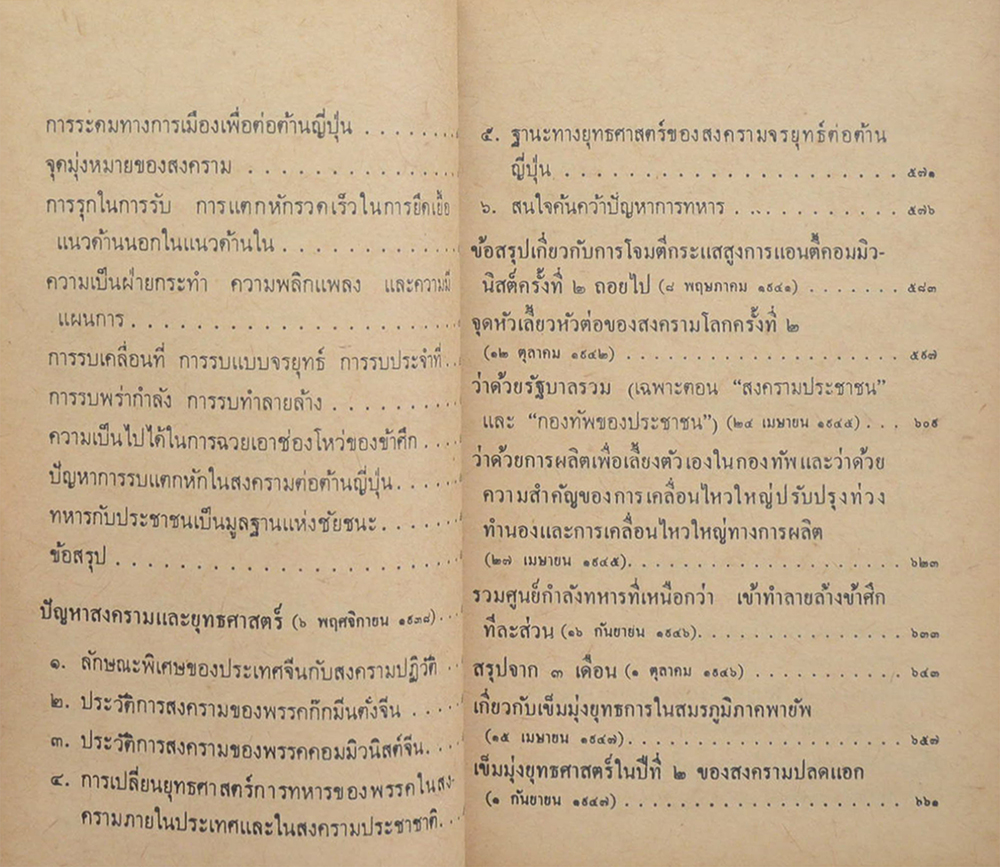 การระดมทางการเมืองเพื่อต่อต้านญี่ปุ่น . . . . . . . .
จุดมุ่งหมายของสงคราม . . . . . . . . . . . . . . . .
การรุกในการรับ การแตกหักรวดเร็วในการยืดเยื้อ
แนวด้านนอกในแนวด้านใน . . . . . . . . . . . . . .
ความเป็นฝ่ายกระทำ ความพลิกแพลง และความมี
แผนการ . . . . . . . . . . . . . . . . . . . . . . . . .
การรบเคลื่อนที่ การรบแบบจรยุทธ์ การรบประจำที่ . .
การรบพร่ากำลัง การรบทำลายล้าง . . . . . . . . . .
ความเป็นไปได้ในการฉวยเอาช่องโหว่ของข้าศึก . . . .
ปัญหาการรบแตกหักในสงครามต่อต้านญี่ปุ่น . . . . .
ทหารกับประชาชนเป็นมูลฐานแห่งชัยชนะ . . . . . . .
ข้อสรุป . . . . . . . . . . . . . . . . . . . . . . . . . .
ปัญหาสงครามและยุทธศาสตร์ (๖ พฤศจิกายน ๑๙๓๘) . . .
๑. ลักษณะพิเศษของประเทศจีนกับสงครามปฏิวัติ . .
๒. ประวัติการสงครามของพรรคก๊กมินตั๋งจีน . . . .
๓. ประวัติการสงครามของพรรคคอมมิวนิสต์จีน. . . .
๔. การเปลี่ยนยุทธศาสตร์การทหารของพรรคในสง-
ครามภายในประเทศและในสงครามประชาชาติ. . .
๕. ฐานะทางยุทธศาสตร์ของสงครามจรยุทธ์ต่อต้าน
ญี่ปุ่น . . . . . . . . . . . . . . . . . . . . . . ๕๗๑
๖. สนใจค้นคว้าปัญหาการทหาร . . . . . . . . . . . ๕๗๖
ข้อสรุปเกี่ยวกับการโจมตีกระแสสูงการแอนตี้คอมมิว-
นิสต์ครั้งที่ ๒ ถอยไป (๘ พฤษภาคม ๑๙๔๑) . . . . . . . ๕๘๓
จุดหัวเลี้ยวหัวต่อของสงครามโลกครั้งที่ ๒
(๑๒ ตุลาคม ๑๙๔๒) . . . . . . . . . . . . . . . . . . ๕๙๗
ว่าด้วยรัฐบาลรวม (เฉพาะตอน “สงครามประชาชน”
และ “กองทัพของประชาชน”) (๒๔ เมษายน ๑๙๔๕) . . . ๖๐๙
ว่าด้วยการผลิตเพื่อเลี้ยงตัวเองในกองทัพและว่าด้วย
ความสำคัญของการเคลื่อนไหวใหญ่ปรับปรุงท่วง
ทำนองและการเคลื่อนไหวใหญ่ทางการผลิต
(๒๗ เมษายน ๑๙๔๕). . . . . . . . . . . . . . . . . . ๖๒๓
รวมศูนย์กำลังทหารที่เหนือกว่า เข้าทำลายล้างข้าศึก
ทีละส่วน (๑๖ กันยายน ๑๙๔๖). . . . . . . . . . . . . ๖๓๓
สรุปจาก ๓ เดือน (๑ ตุลาคม ๑๙๔๖) . . . . . . . . . . . ๖๔๓
เกี่ยวกับเข็มมุ่งยุทธการในสมรภูมิภาคพายัพ
(๑๕ เมษายน ๑๙๔๗). . . . . . . . . . . . . . . . . . ๖๕๗
เข็มมุ่งยุทธศาสตร์ในปีที่ ๒ ของสงครามปลดแอก
(๑ กันยายน ๑๙๔๗) . . . . . . . . . . . . . . . . . . ๖๖๑